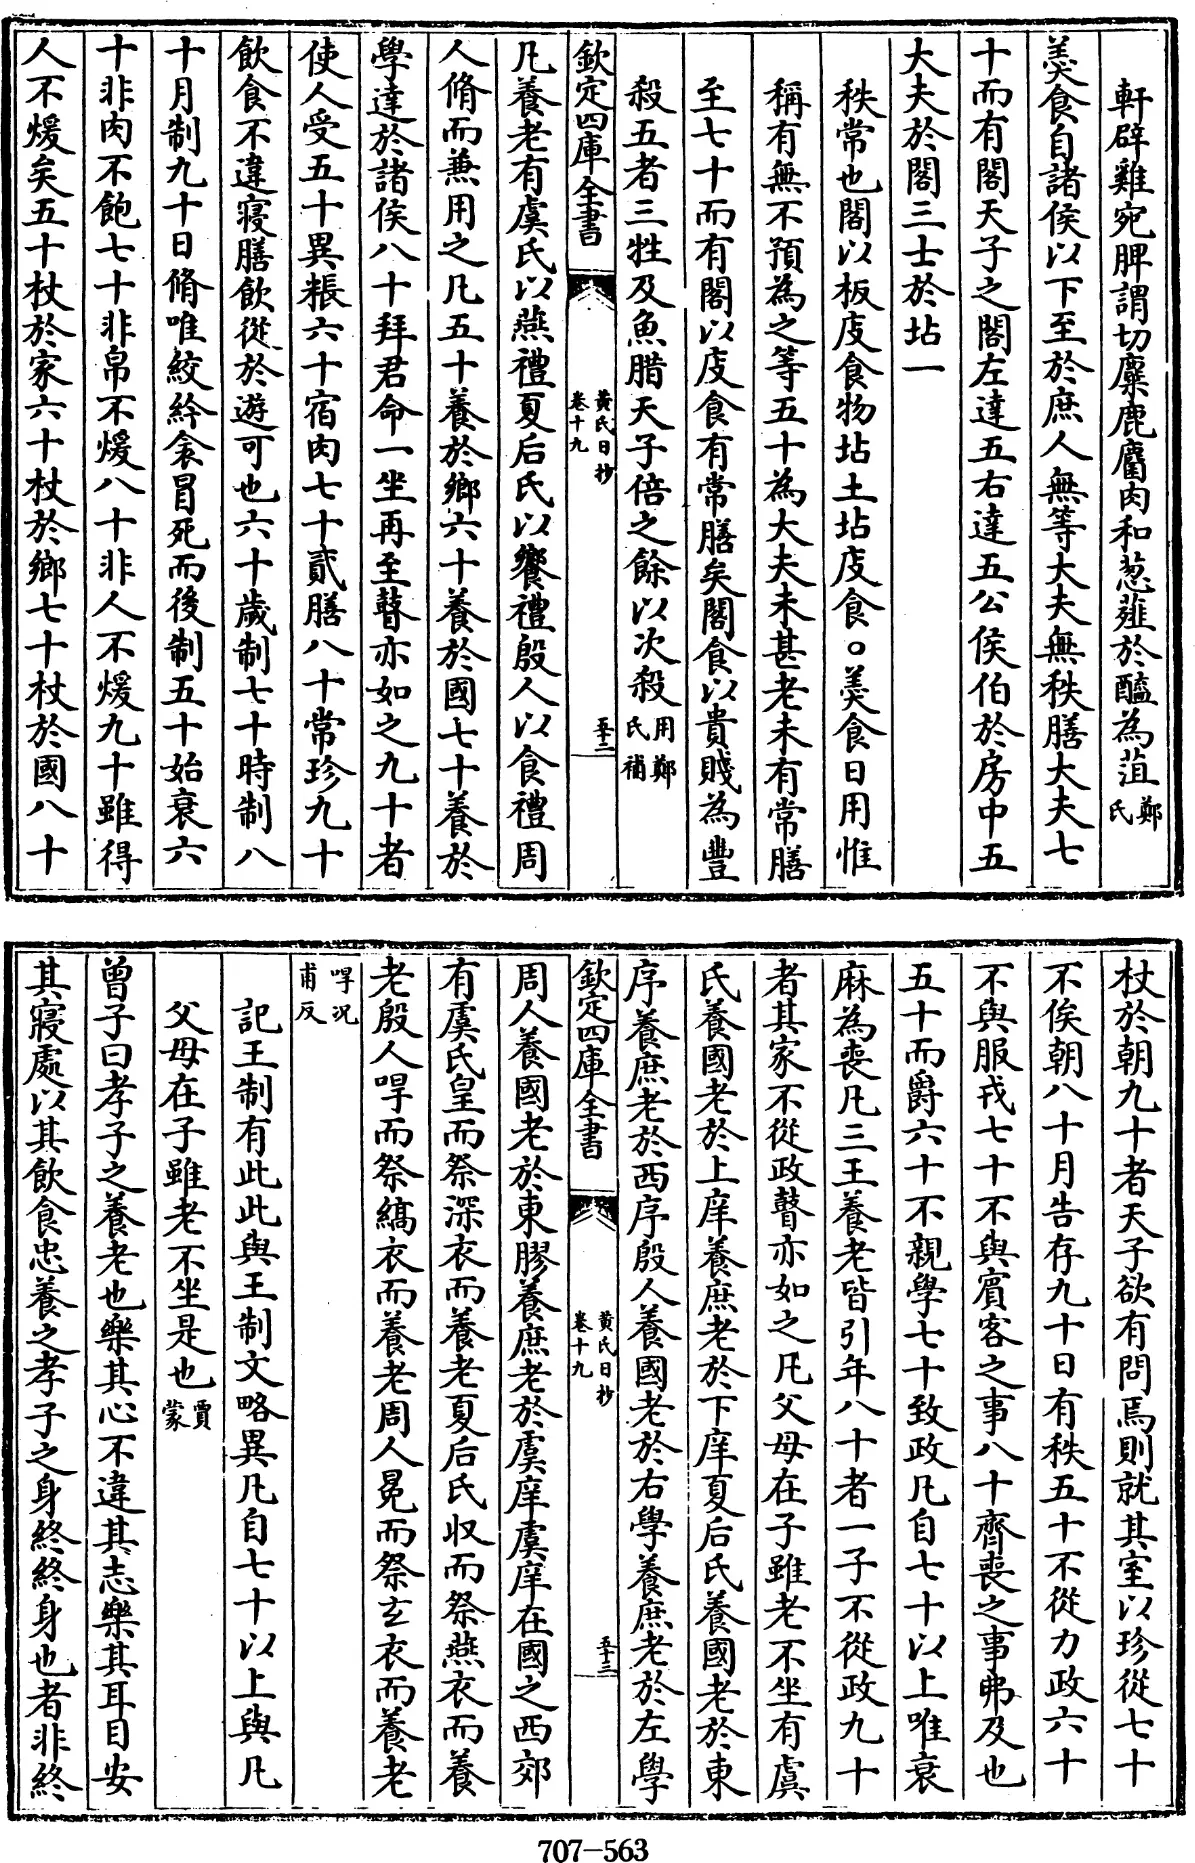 軒辟雞宛脾謂切麋鹿麕肉和葱薤於醯為菹鄭氏
羮食自諸侯以下至於庶人無等大夫無秩膳大夫七
十而有閣天子之閣左達五右達五公侯伯於房中五
大夫於閣三士於坫一
秩常也閣以板庋食物坫土坫庋食○羮食日用惟
稱有無不預為之等五十為大夫未甚老未有常膳
至七十而有閣以庋食有常膳矣閣食以貴賤為豐
殺五者三牲及魚腊天子倍之餘以次殺用鄭氏補
欽定四庫全書
黃氏日抄
卷十九
五十二
凡養老有虞氏以燕禮夏后氏以饗禮殷人以食禮周
人脩而兼用之凡五十養於鄉六十養於國七十養於
學達於諸侯八十拜君命一坐再至瞽亦如之九十者
使人受五十異粻六十宿肉七十貳膳八十常珍九十
飲食不違寢膳飲從於遊可也六十歲制七十時制八
十月制九十日脩唯絞紟衾冒死而後制五十始衰六
十非肉不飽七十非帛不煖八十非人不煖九十雖得
人不煖矣五十杖於家六十杖於鄉七十杖於國八十
杖於朝九十者天子欲有問焉則就其室以珍從七十
不俟朝八十月告存九十日有秩五十不從力政六十
不與服戎七十不與賓客之事八十齊喪之事弗及也
五十而爵六十不親學七十致政凡自七十以上唯衰
麻為喪凡三王養老皆引年八十者一子不從政九十
者其家不從政瞽亦如之凡父母在子雖老不坐有虞
氏養國老於上庠養庶老於下庠夏后氏養國老於東
序養庶老於西序殷人養國老於右學養庶老於左學
欽定四庫全書
黃氏日抄
卷十九
五十三
周人養國老於東膠養庶老於虞庠虞庠在國之西郊
有虞氏皇而祭深衣而養老夏后氏收而祭燕衣而養
老殷人冔而祭縞衣而養老周人冕而祭玄衣而養老
冔況甫反
記王制有此此與王制文略異凡自七十以上與凡
父母在子雖老不坐是也賈蒙
曾子曰孝子之養老也樂其心不違其志樂其耳目安
其寢處以其飲食忠養之孝子之身終終身也者非終
707-563